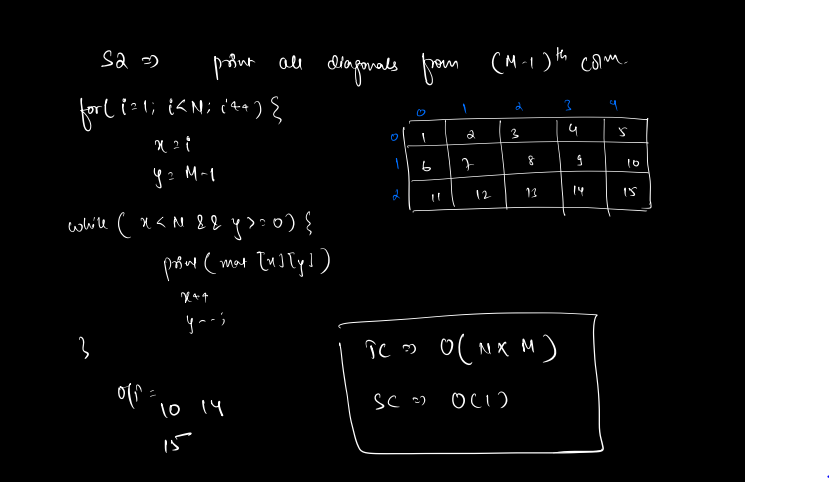 S2 => print all diagonals from (M-1)th colm.
for( i=1; i<N; i++) {
x = i
y = M-1
while ( x < N && y >= 0) {
print ( mat [x][y] )
x++
y--;
}
o/p =
10 14
15
0 1 2 3 4
0 1 2 3 4 5
1 6 7 8 9 10
2 11 12 13 14 15
TC => O( N x M )
SC => O(1)